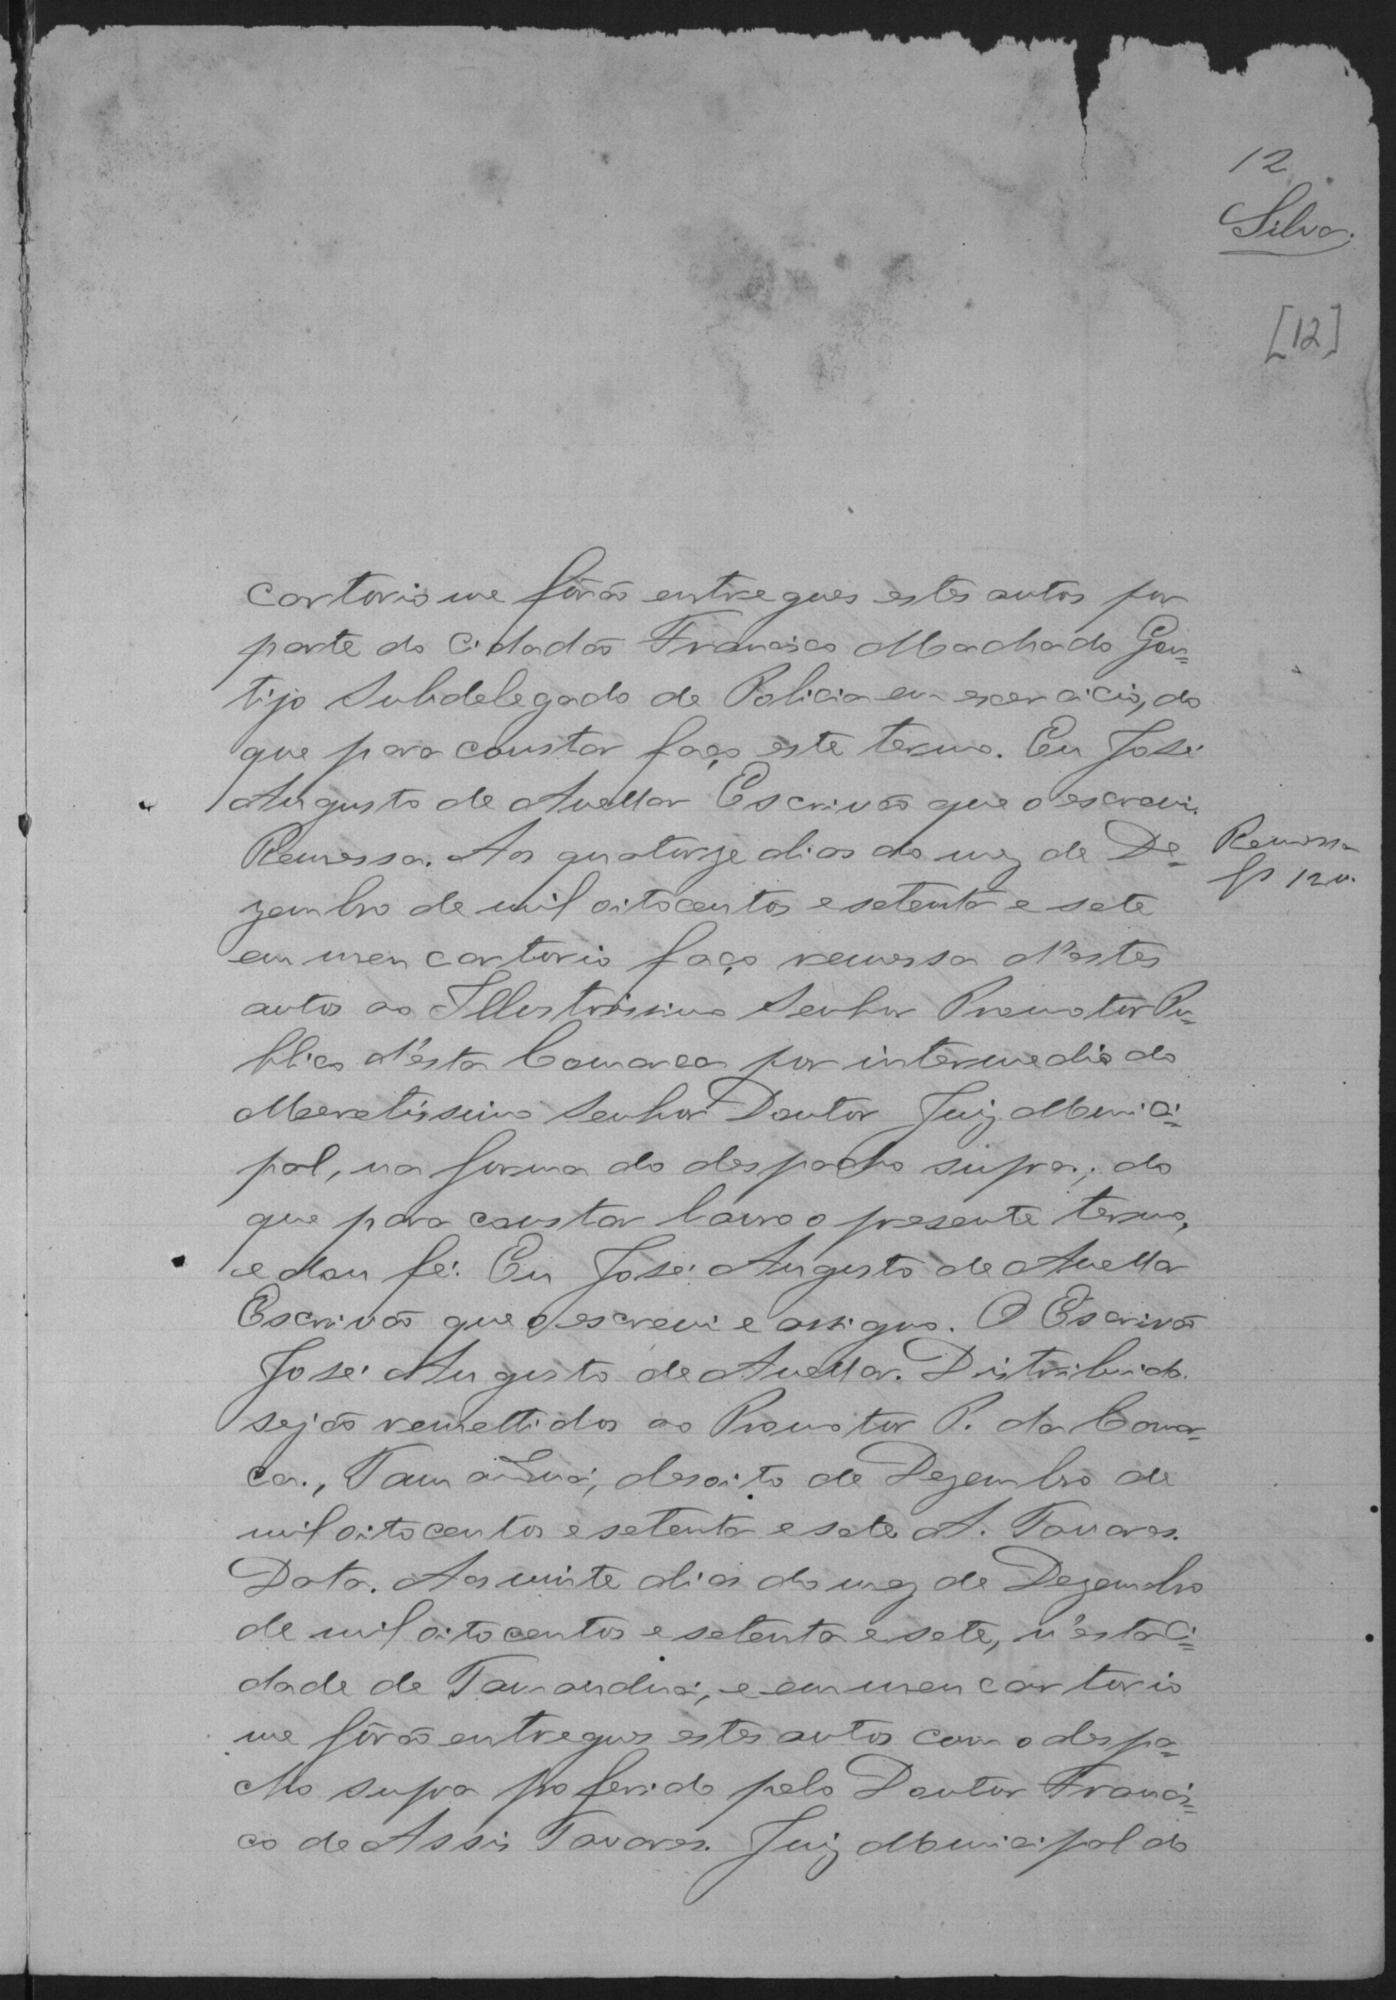 12
Silva.
[12]
cartorio me forão entregues estes autos por
parte do Cidadão Francisco Machado Gon=
tijo Subdelegado de Policia em exercicio, do
que para constar faço este termo. Eu José
Augusto de Avellar Escrivão que o escrevi.
Remessa. Aos quatorze dias do mez de De=
zembro de mil oitocentos e setenta e sete
em meu cartorio faço remessa d'estes
autos ao Illustrissimo Senhor Promotor Pu=
blico d'esta Comarca por intermedio do
Meretissimo Senhor Doutor Juiz Munici=
pal, na forma do despacho supra; do
que para constar lavro o presente termo,
e dou fé. Eu José Augusto de Avellar
Escrivão que o escrevi e assigno. O Escrivão
José Augusto de Avellar. Distribuido
sejão remettidos ao Promotor P. da Comar=
ca., Tamanduá, desoito de Dezembro de
mil oitocentos e setenta e sete A. Tavares.
Data. Aos vinte dias do mez de Dezembro
de mil oitocentos e setenta e sete, n'esta Ci=
dade de Tamanduá, e em meu cartorio
me forão entregues estes autos com o despa=
cho supra proferido pelo Doutor Francis=
co de Assis Tavares. Juiz Municipal do
Remessa
fs 12 v.